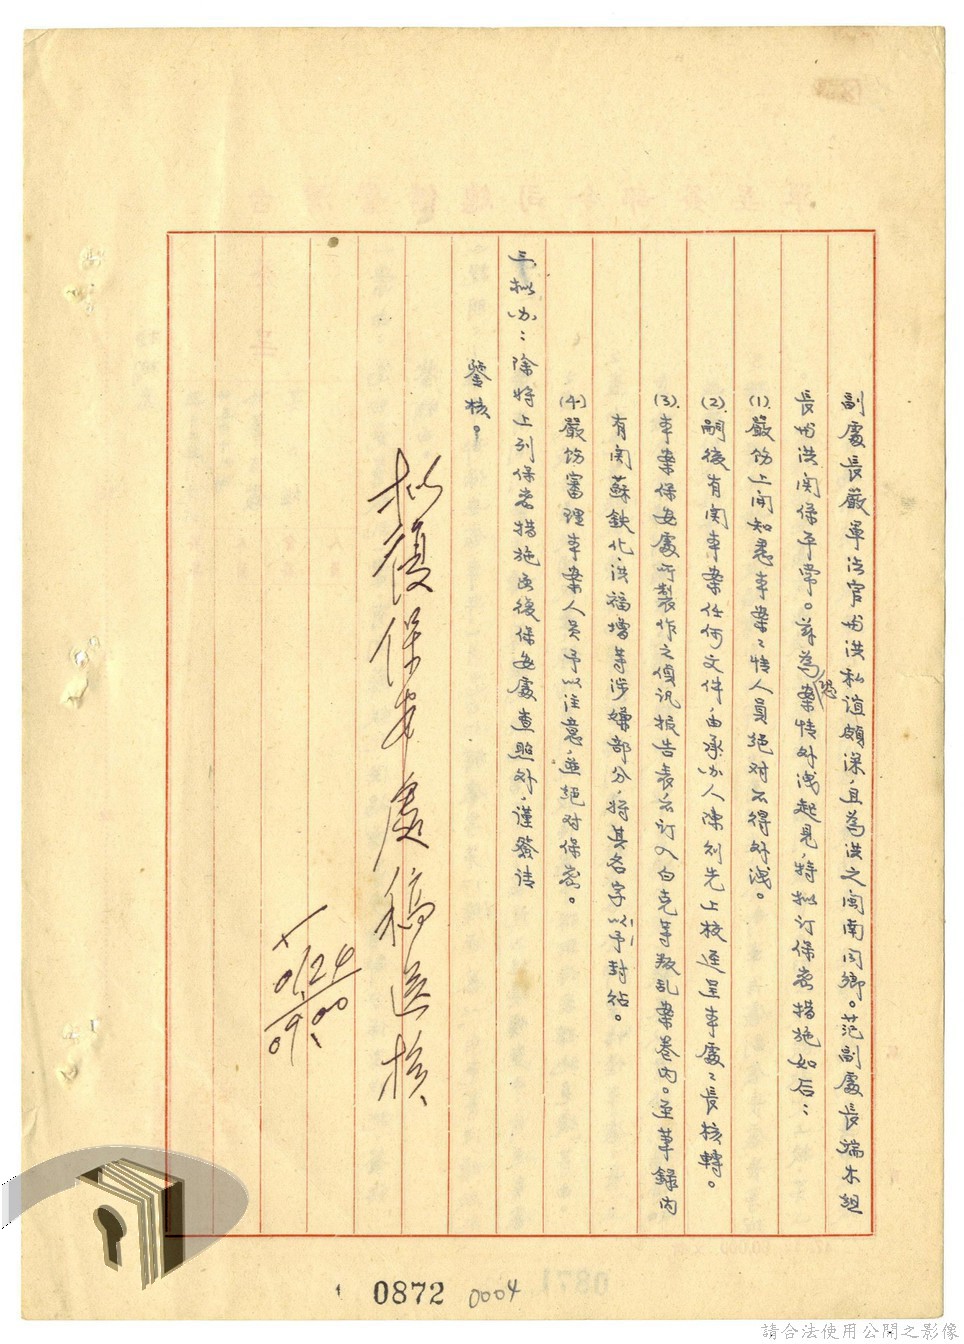 副處長嚴軍法官與洪私誼頗深，且為洪之閩南同鄉。范副處長端木組
長與洪関係平常。茲為恐案情外洩起見，特拟訂保密措施如后：
(1).嚴飭上開知悉本案之情人員絕对不得外洩。
(2).嗣後有関本案任何文件由承办人陳列先上校逕呈本處之長核轉。
(3).本案保安處所製作之偵訊报告表不訂入白克等叛乱案卷內。至筆錄內
有関蘇鉄化、洪福增等涉嫌部分，將其名字以予封贴。
(4).嚴飭審理本案人員予以注意，並絕对保密。
三、拟办：除將上列保密措施函復保安處查照外，謹簽請
鑒核。
拟復保安處稿送核
0124
0900
0872 0004
請合法使用公開之影像